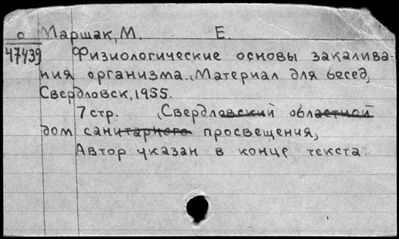 о Маршак, М. Е.
47439 Физиологические основы закалива-
ния организма. Материал для бесед,
Свердловск, 1955.
7 стр. Свердловский областной
дом санитарного просвещения,
Автор указан в конце текста.